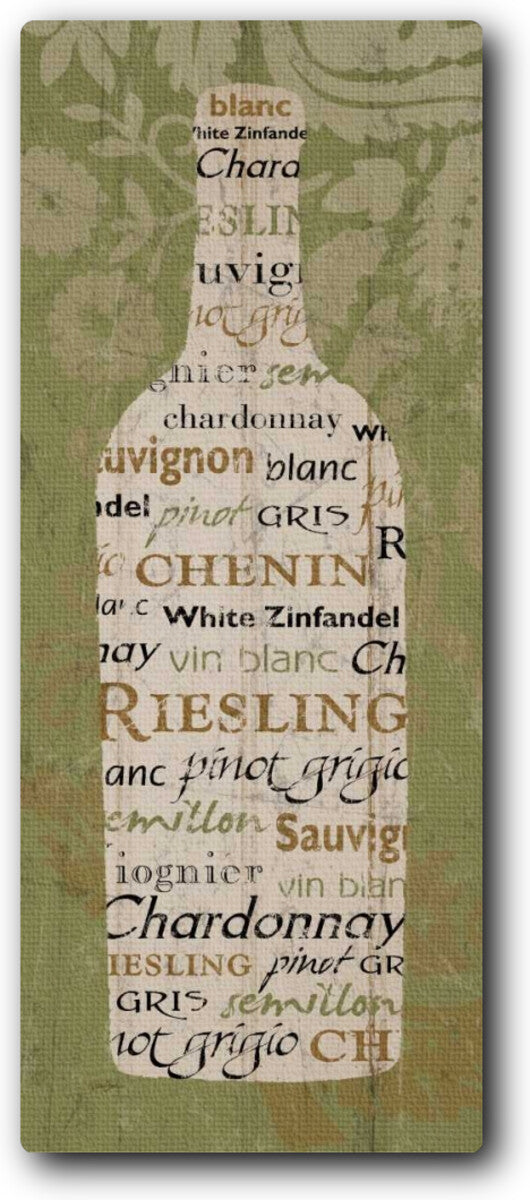 blanc
hite Zinfande
Chard
ESLIN
uvig
not grig
gnier sem
chardonnay Wh
auvignon blanc
ndel pinot GRIS pin
R
io CHENIN
lanc White Zinfandel
nay vin blanc Ch
RIESLING
anc pinot grigio
emillon Sauvig
iognier vin blan
Chardonnay
IESLING pinot GR
GRIS semillon
not grigio CH